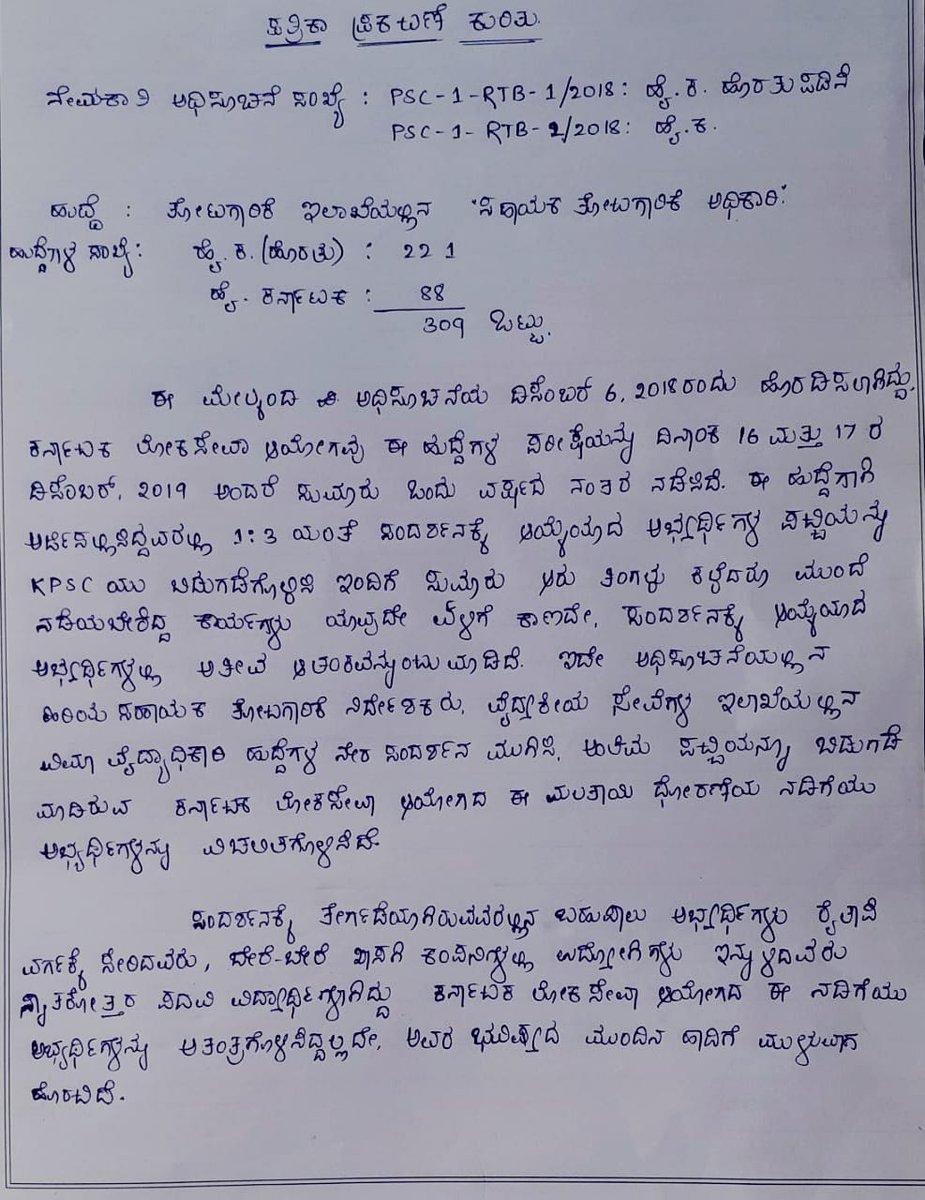 ಪತ್ರಿಕಾ ಪ್ರಕಟಣೆ ಕುರಿತು.
ನೇಮಕಾತಿ ಅಧಿಸೂಚನೆ ಸಂಖ್ಯೆ : PSC-1-RTB-1/2018: ಹೈ.ಕ. ಹೊರತುಪಡಿಸಿ
PSC-1-RTB-2/2018: ಹೈ.ಕ.
ಹುದ್ದೆ : ತೋಟಗಾರಿಕೆ ಇಲಾಖೆಯಲ್ಲಿನ 'ಸಹಾಯಕ ತೋಟಗಾರಿಕೆ ಅಧಿಕಾರಿ'
ಹುದ್ದೆಗಳ ಸಂಖ್ಯೆ: ಹೈ.ಕ.(ಹೊರತು) : 221
ಹೈ. ಕರ್ನಾಟಕ : 88
309 ಒಟ್ಟು.
ಈ ಮೇಲ್ಕಂಡ ಅಧಿಸೂಚನೆಯು ಡಿಸೆಂಬರ್ 6, 2018ರಂದು ಹೊರಡಿಸಲಾಗಿದ್ದು.
ಕರ್ನಾಟಕ ಲೋಕಸೇವಾ ಆಯೋಗವು ಈ ಹುದ್ದೆಗಳ ಪರೀಕ್ಷೆಯನ್ನು ದಿನಾಂಕ 16 ಮತ್ತು 17 ರ
ಡಿಸೆಂಬರ್, 2019 ಅಂದರೆ ಸುಮಾರು ಒಂದು ವರ್ಷದ ನಂತರ ನಡೆಸಿದೆ. ಈ ಹುದ್ದೆಗಾಗಿ
ಅರ್ಜಿಸಲ್ಲಿಸಿದ್ದವರಲ್ಲಿ 1:3 ಯಂತೆ ಸಂದರ್ಶನಕ್ಕೆ ಆಯ್ಕೆಯಾದ ಅಭ್ಯರ್ಥಿಗಳ ಪಟ್ಟಿಯನ್ನು
KPSC ಯು ಬಿಡುಗಡೆಗೊಳಿಸಿ ಇಂದಿಗೆ ಸುಮಾರು ಆರು ತಿಂಗಳು ಕಳೆದರೂ ಮುಂದೆ
ನಡೆಯಬೇಕಿದ್ದ ಕಾರ್ಯಗಳು ಯಾವುದೇ ಏಳಿಗೆ ಕಾಣದೇ, ಸಂದರ್ಶನಕ್ಕೆ ಆಯ್ಕೆಯಾದ
ಅಭ್ಯರ್ಥಿಗಳಲ್ಲಿ ಅತೀವ ಆತಂಕವನ್ನುಂಟು ಮಾಡಿದೆ. ಇದೇ ಅಧಿಸೂಚನೆಯಲ್ಲಿನ
ಹಿರಿಯ ಸಹಾಯಕ ತೋಟಗಾರಿಕೆ ನಿರ್ದೇಶಕರು, ವೈದ್ಯಕೀಯ ಸೇವೆಗಳ ಇಲಾಖೆಯಲ್ಲಿನ
ವಿಮಾ ವೈದ್ಯಾಧಿಕಾರಿ ಹುದ್ದೆಗಳ ನೇರ ಸಂದರ್ಶನ ಮುಗಿಸಿ, ಅಂತಿಮ ಪಟ್ಟಿಯನ್ನೂ ಬಿಡುಗಡೆ
ಮಾಡಿರುವ ಕರ್ನಾಟಕ ಲೋಕಸೇವಾ ಆಯೋಗದ ಈ ಮಲತಾಯಿ ಧೋರಣೆಯ ನಡಿಗೆಯು
ಅಭ್ಯರ್ಥಿಗಳನ್ನು ವಿಚಲಿತಗೊಳಿಸಿದೆ.
ಸಂದರ್ಶನಕ್ಕೆ ತೇರ್ಗಡೆಯಾಗಿರುವವರಲ್ಲಿನ ಬಹುಪಾಲು ಅಭ್ಯರ್ಥಿಗಳು ರೈತಾಪಿ
ವರ್ಗಕ್ಕೆ ಸೇರಿದವರು, ಬೇರೆ-ಬೇರೆ ಖಾಸಗಿ ಕಂಪನಿಗಳಲ್ಲಿ ಉದ್ಯೋಗಿಗಳು ಇನ್ನುಳಿದವರು
ಸ್ನಾತಕೋತ್ತರ ಪದವಿ ವಿದ್ಯಾರ್ಥಿಗಳಾಗಿದ್ದು ಕರ್ನಾಟಕ ಲೋಕಸೇವಾ ಆಯೋಗದ ಈ ನಡಿಗೆಯು
ಅಭ್ಯರ್ಥಿಗಳನ್ನು ಅತಂತ್ರಗೊಳಿಸಿದ್ದಲ್ಲದೇ, ಅವರ ಭವಿಷ್ಯದ ಮುಂದಿನ ಹಾದಿಗೆ ಮುಳುವಾಗ
ಹೊರಟಿದೆ.